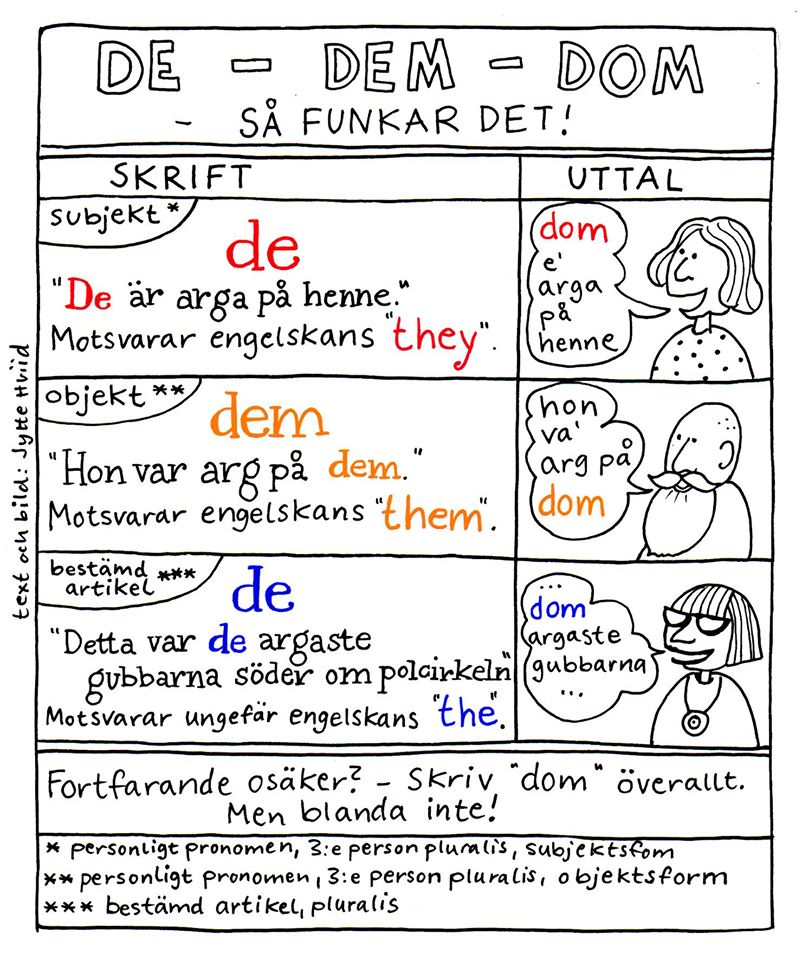 DE - DEM - DOM
- SÅ FUNKAR DET!
SKRIFT
UTTAL
subjekt *
de
"De är arga på henne."
Motsvarar engelskans "they".
dom
e'
arga
på
henne
objekt **
dem
"Hon var arg på dem."
Motsvarar engelskans "them".
hon
va'
arg på
dom
bestämd
artikel ***
de
"Detta var de argaste
gubbarna söder om polcirkeln"
Motsvarar ungefär engelskans "the".
...
dom
argaste
gubbarna
...
Fortfarande osäker? - Skriv "dom" överallt.
Men blanda inte!
* personligt pronomen, 3:e person pluralis, subjektsfom
** personligt pronomen, 3:e person pluralis, objektsform
*** bestämd artikel, pluralis
text och bild: Jytte Hviid